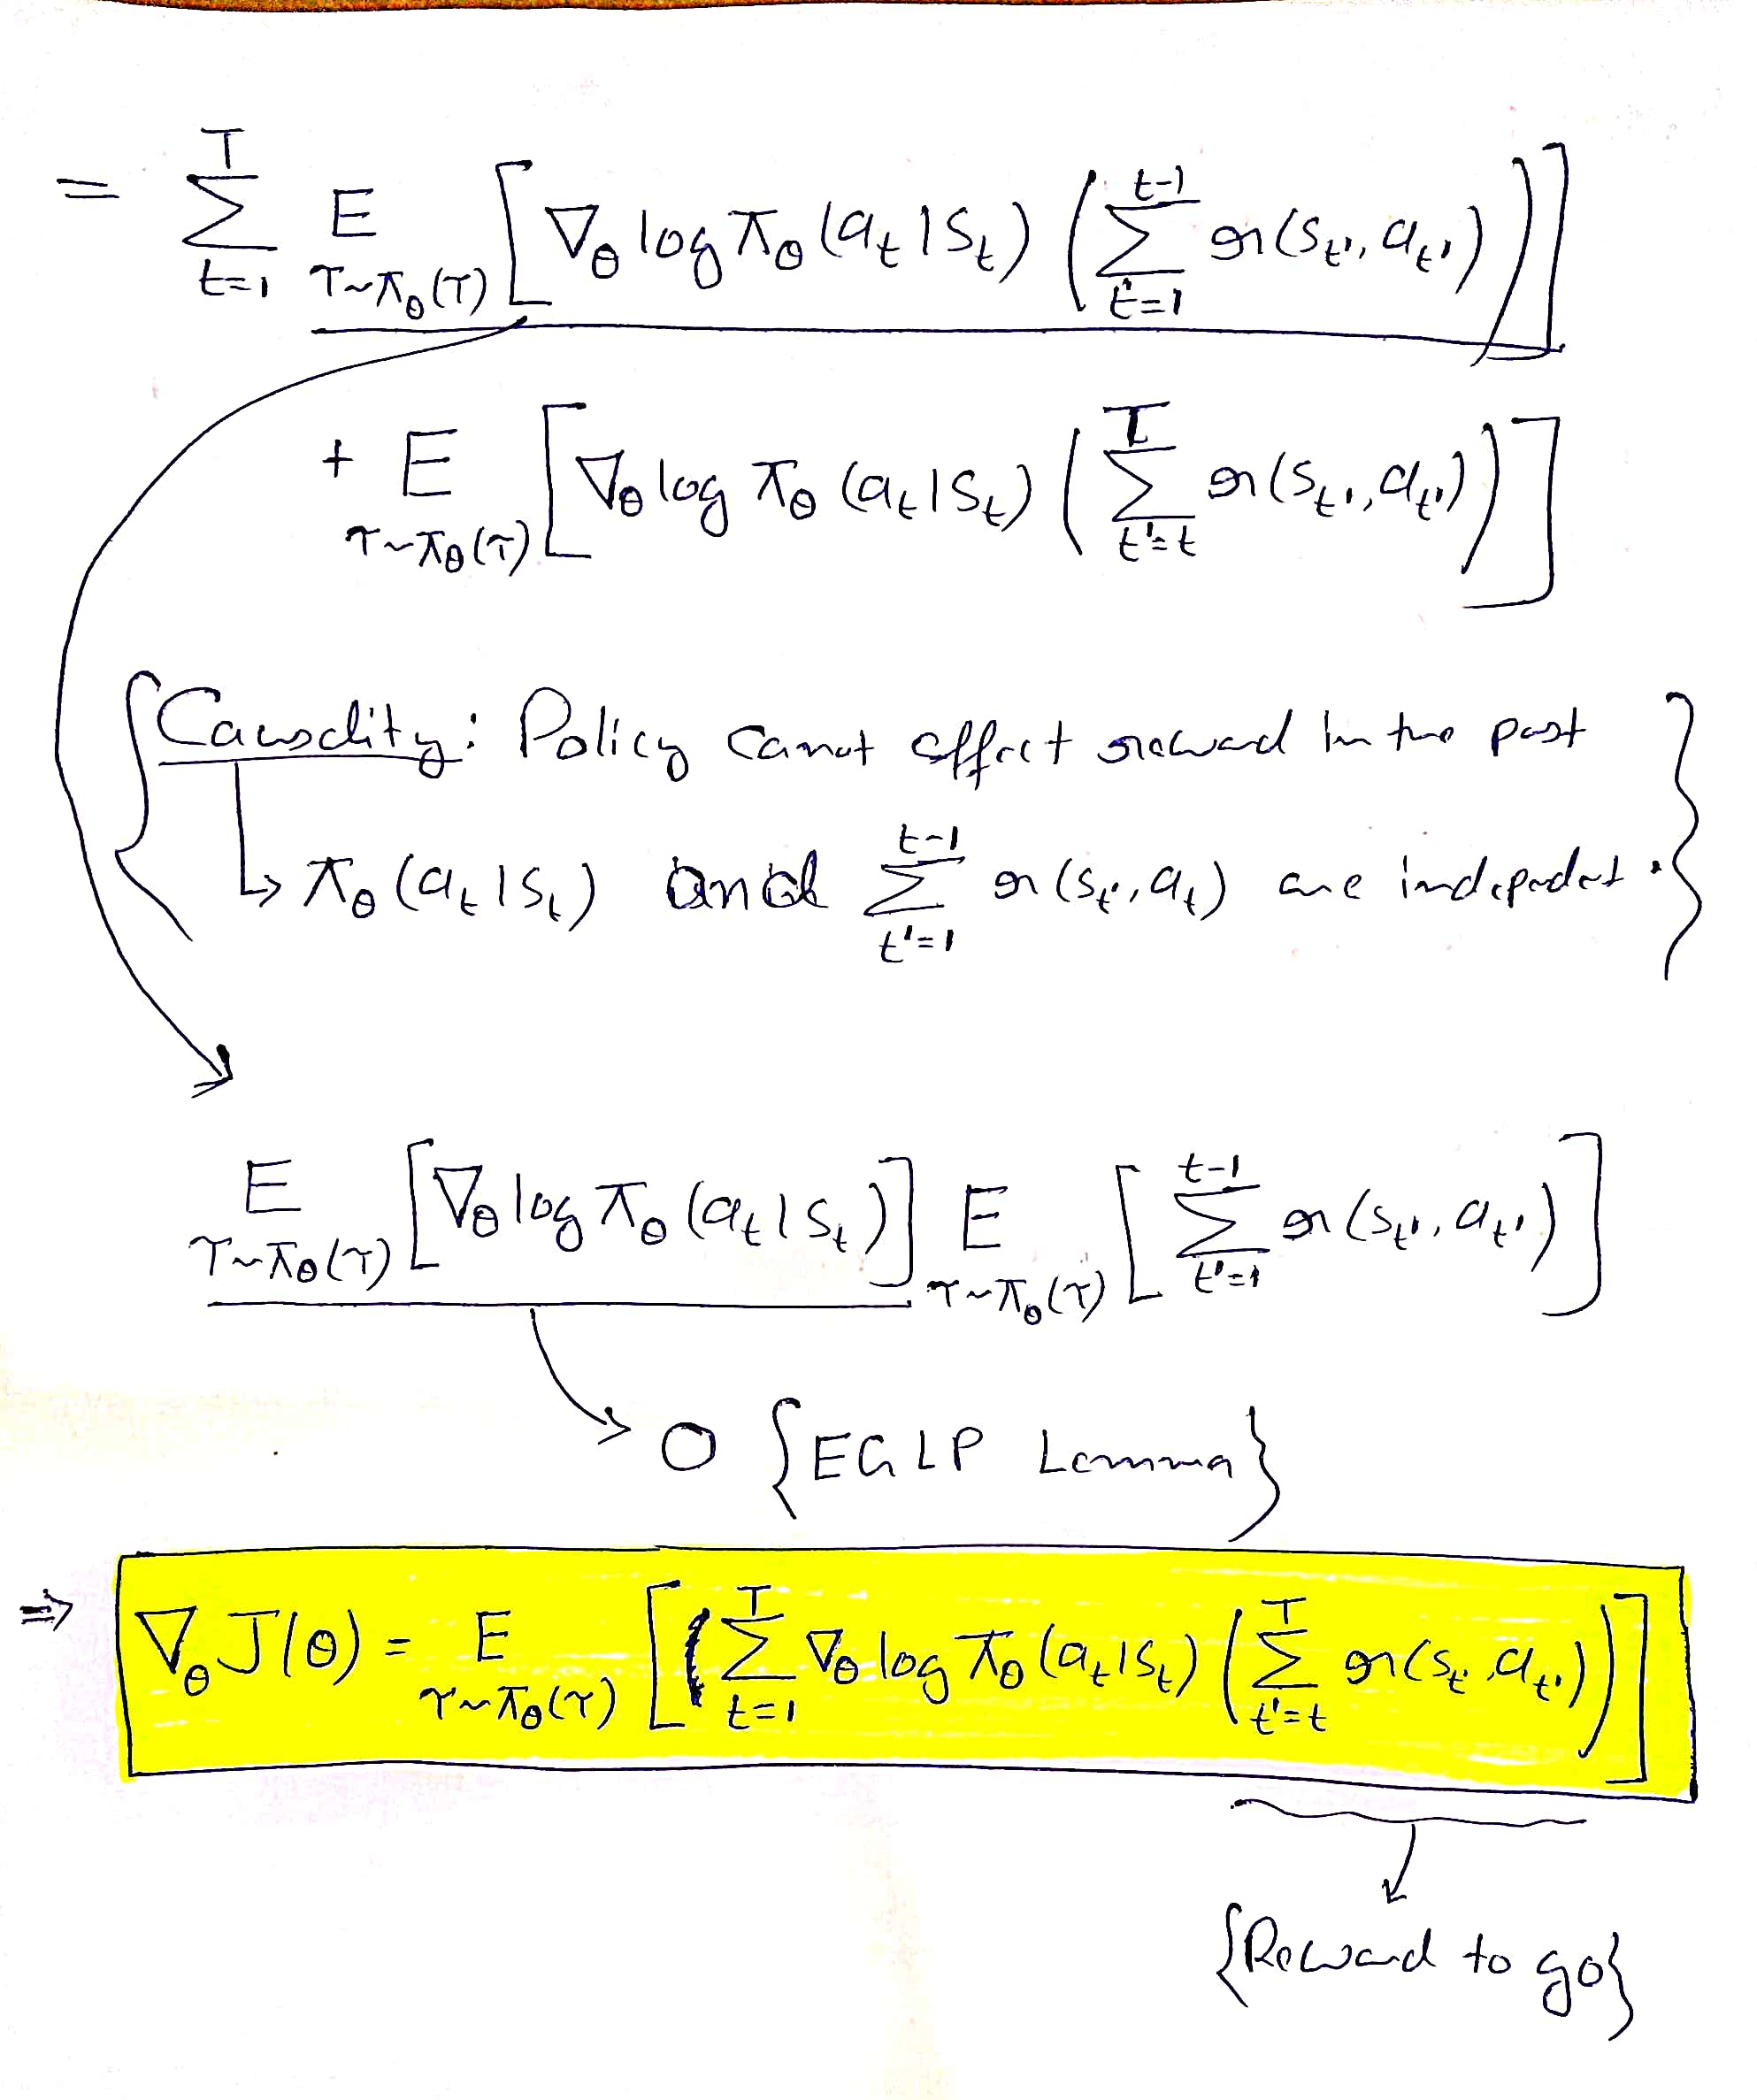 = \sum_{t=1}^{T} E_{τ~π_θ(τ)} [ ∇_θ log π_θ(a_t|s_t) ( \sum_{t'=1}^{t-1} r(s_{t'}, a_{t'}) ) ]
+ E_{τ~π_θ(τ)} [ ∇_θ log π_θ(a_t|s_t) ( \sum_{t'=t}^{T} r(s_{t'}, a_{t'}) ) ]
{ Causality: Policy cannot affect reward in the past
↳ π_θ(a_t|s_t) and \sum_{t'=1}^{t-1} r(s_{t'}, a_t) are independent. }
E_{τ~π_θ(τ)} [ ∇_θ log π_θ(a_t|s_t) ] E_{τ~π_θ(τ)} [ \sum_{t'=1}^{t-1} r(s_{t'}, a_{t'}) ]
→ 0 {EGLP Lemma}
⇒ ∇_θ J(θ) = E_{τ~π_θ(τ)} [ ( \sum_{t=1}^{T} ∇_θ log π_θ(a_t|s_t) ( \sum_{t'=t}^{T} r(s_{t'}, a_{t'}) ) ]
{Reward to go}